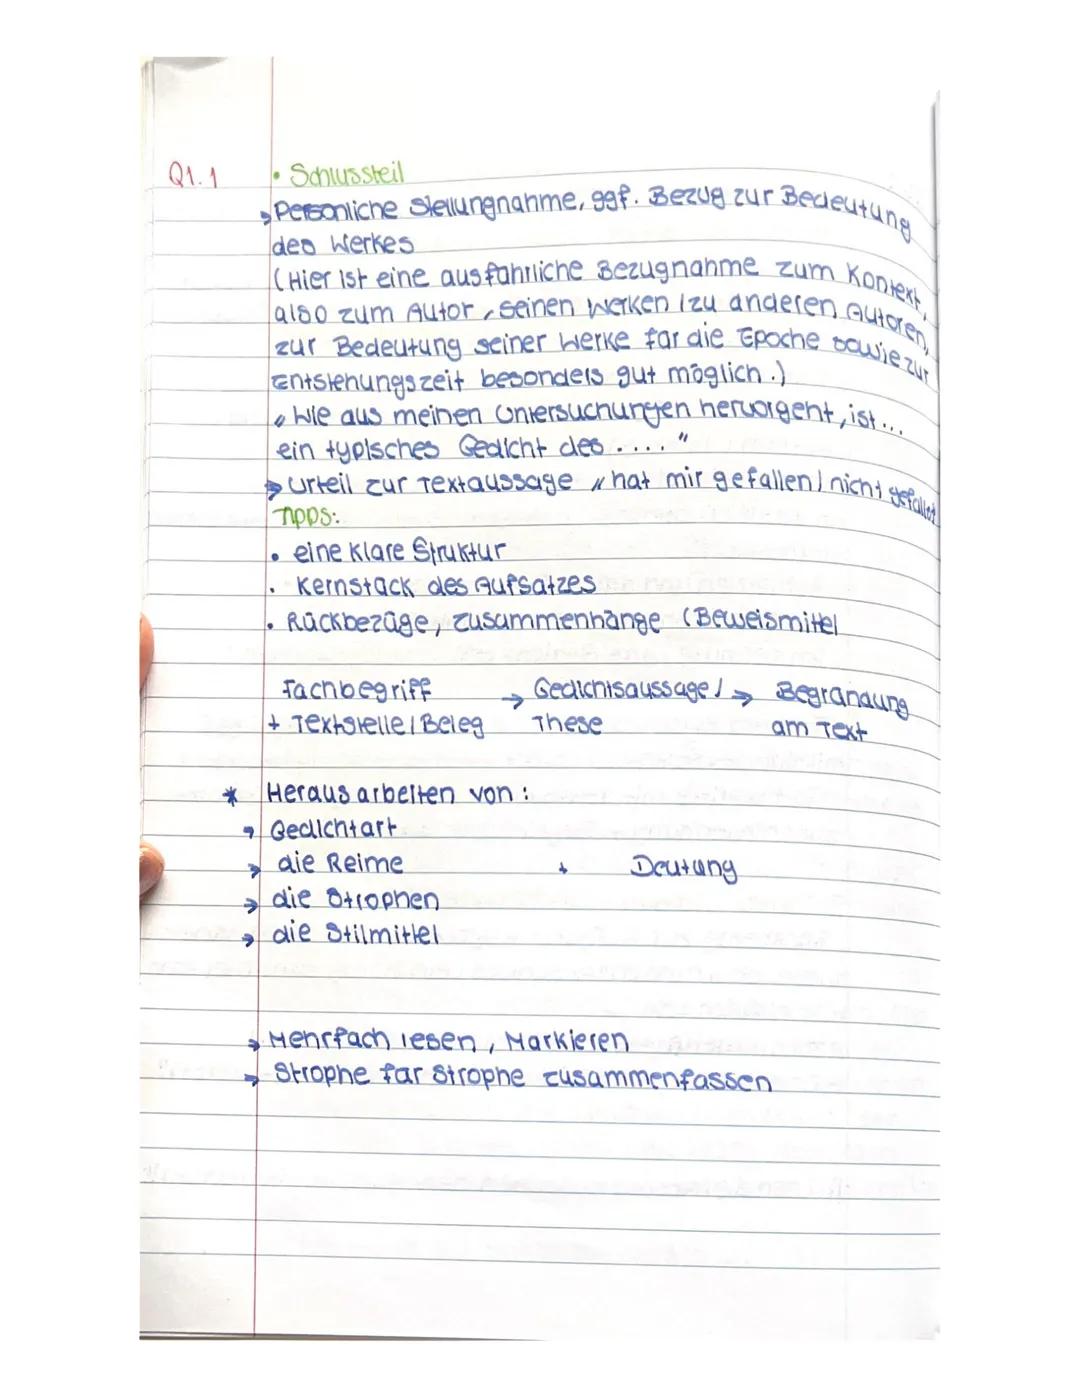 Q1.1 • Schlussteil
→ Persönliche Stellungnahme, ggf. Bezug zur Bedeutung
des Werkes
(Hier ist eine ausführliche Bezugnahme zum Kontext,
also zum Autor, seinen Werken / zu anderen Autoren,
zur Bedeutung seiner Werke für die Epoche sowie zur
Entstehungszeit besonders gut möglich.)
„Wie aus meinen Untersuchungen hervorgeht, ist...
ein typisches Gedicht des ...."
→ Urteil zur Textaussage „hat mir gefallen / nicht gefallen
Tipps:
• eine klare Struktur
• Kernstück des Aufsatzes
• Rückbezüge, Zusammenhänge (Beweismittel
Fachbegriff → Gedichtsaussage / → Begründung
+ Textstelle / Beleg These am Text
* Herausarbeiten von:
→ Gedichtart
→ die Reime + Deutung
→ die Strophen
→ die Stilmittel
→ Mehrfach lesen, Markieren
→ Strophe für Strophe zusammenfassen